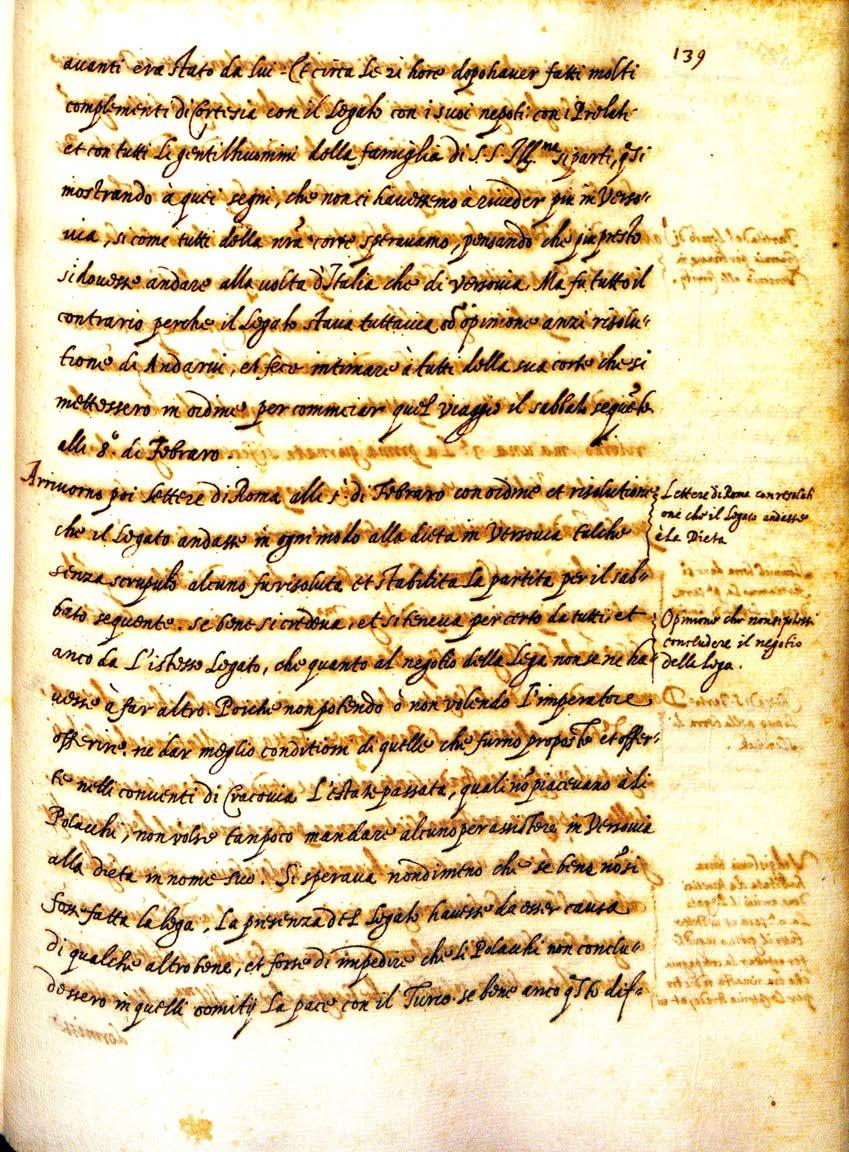 139
auanti era stato da lui. Et circa le 21 hore dopo hauer fatti molti
complementi di Cortesia con il Legato con i suoi nepoti con i Prelati
et con tutti li gentilhuomini della famiglia di S.S. Ill.ma si parti, q̃si
mostrando à quei segni, che non ci hauessimo à riueder piu in Verso-
uia, si come tutti della nrã corte sperauamo, pensando che piu presto
si douesse andare alla uolta d'Italia che di Versouia. Ma fu tutto il
contrario perche il Legato staua tuttauia cõ opinione anzi risolu-
tione di Andarui, et fece intimare à tutti della sua corte che si
mettessero in ordine per cominciar quel viaggio il sabbato sequẽte
alli 8.º di Febraro
Arriuorno poi lettere di Roma alli 5.º di Febraro con ordine et risolutione
che il Legato andasse in ogni modo alla dieta in Versouia talche
senza scrupulo alcuno fu risoluta et stabilita la partita per il sab-
bato sequente. se bene si credeua, et si teneua per certo da tutti, et
anco da L'istesso Legato, che quanto al negotio della Lega non se ne ha-
uesse à far altro. Poiche non potendo ò non volendo l'imperatore
offerire. ne dar meglio conditioni di quelle che furno proposte et offer-
te nelli conuenti di Cracouia L'estate passata, quali nõ piaceuano à li
Polacchi, non volse tanpoco mandare alcuno per assistere in Versouia
alla dieta in nome suo. Si speraua nondimeno che se bene nõ si
fosse fatta la lega, La presenza del Legato hauesse da esser causa
di qualche altro bene, et forse di impedire che li Polacchi non conclu-
dessero in quelli comitij La pace con il Turco. se bene anco q̃sto dif-
Lettere di Roma con resoluti
one che il Legato andasse
à la Dieta
Opinione che non si possi
concludere il negotio
della lega.